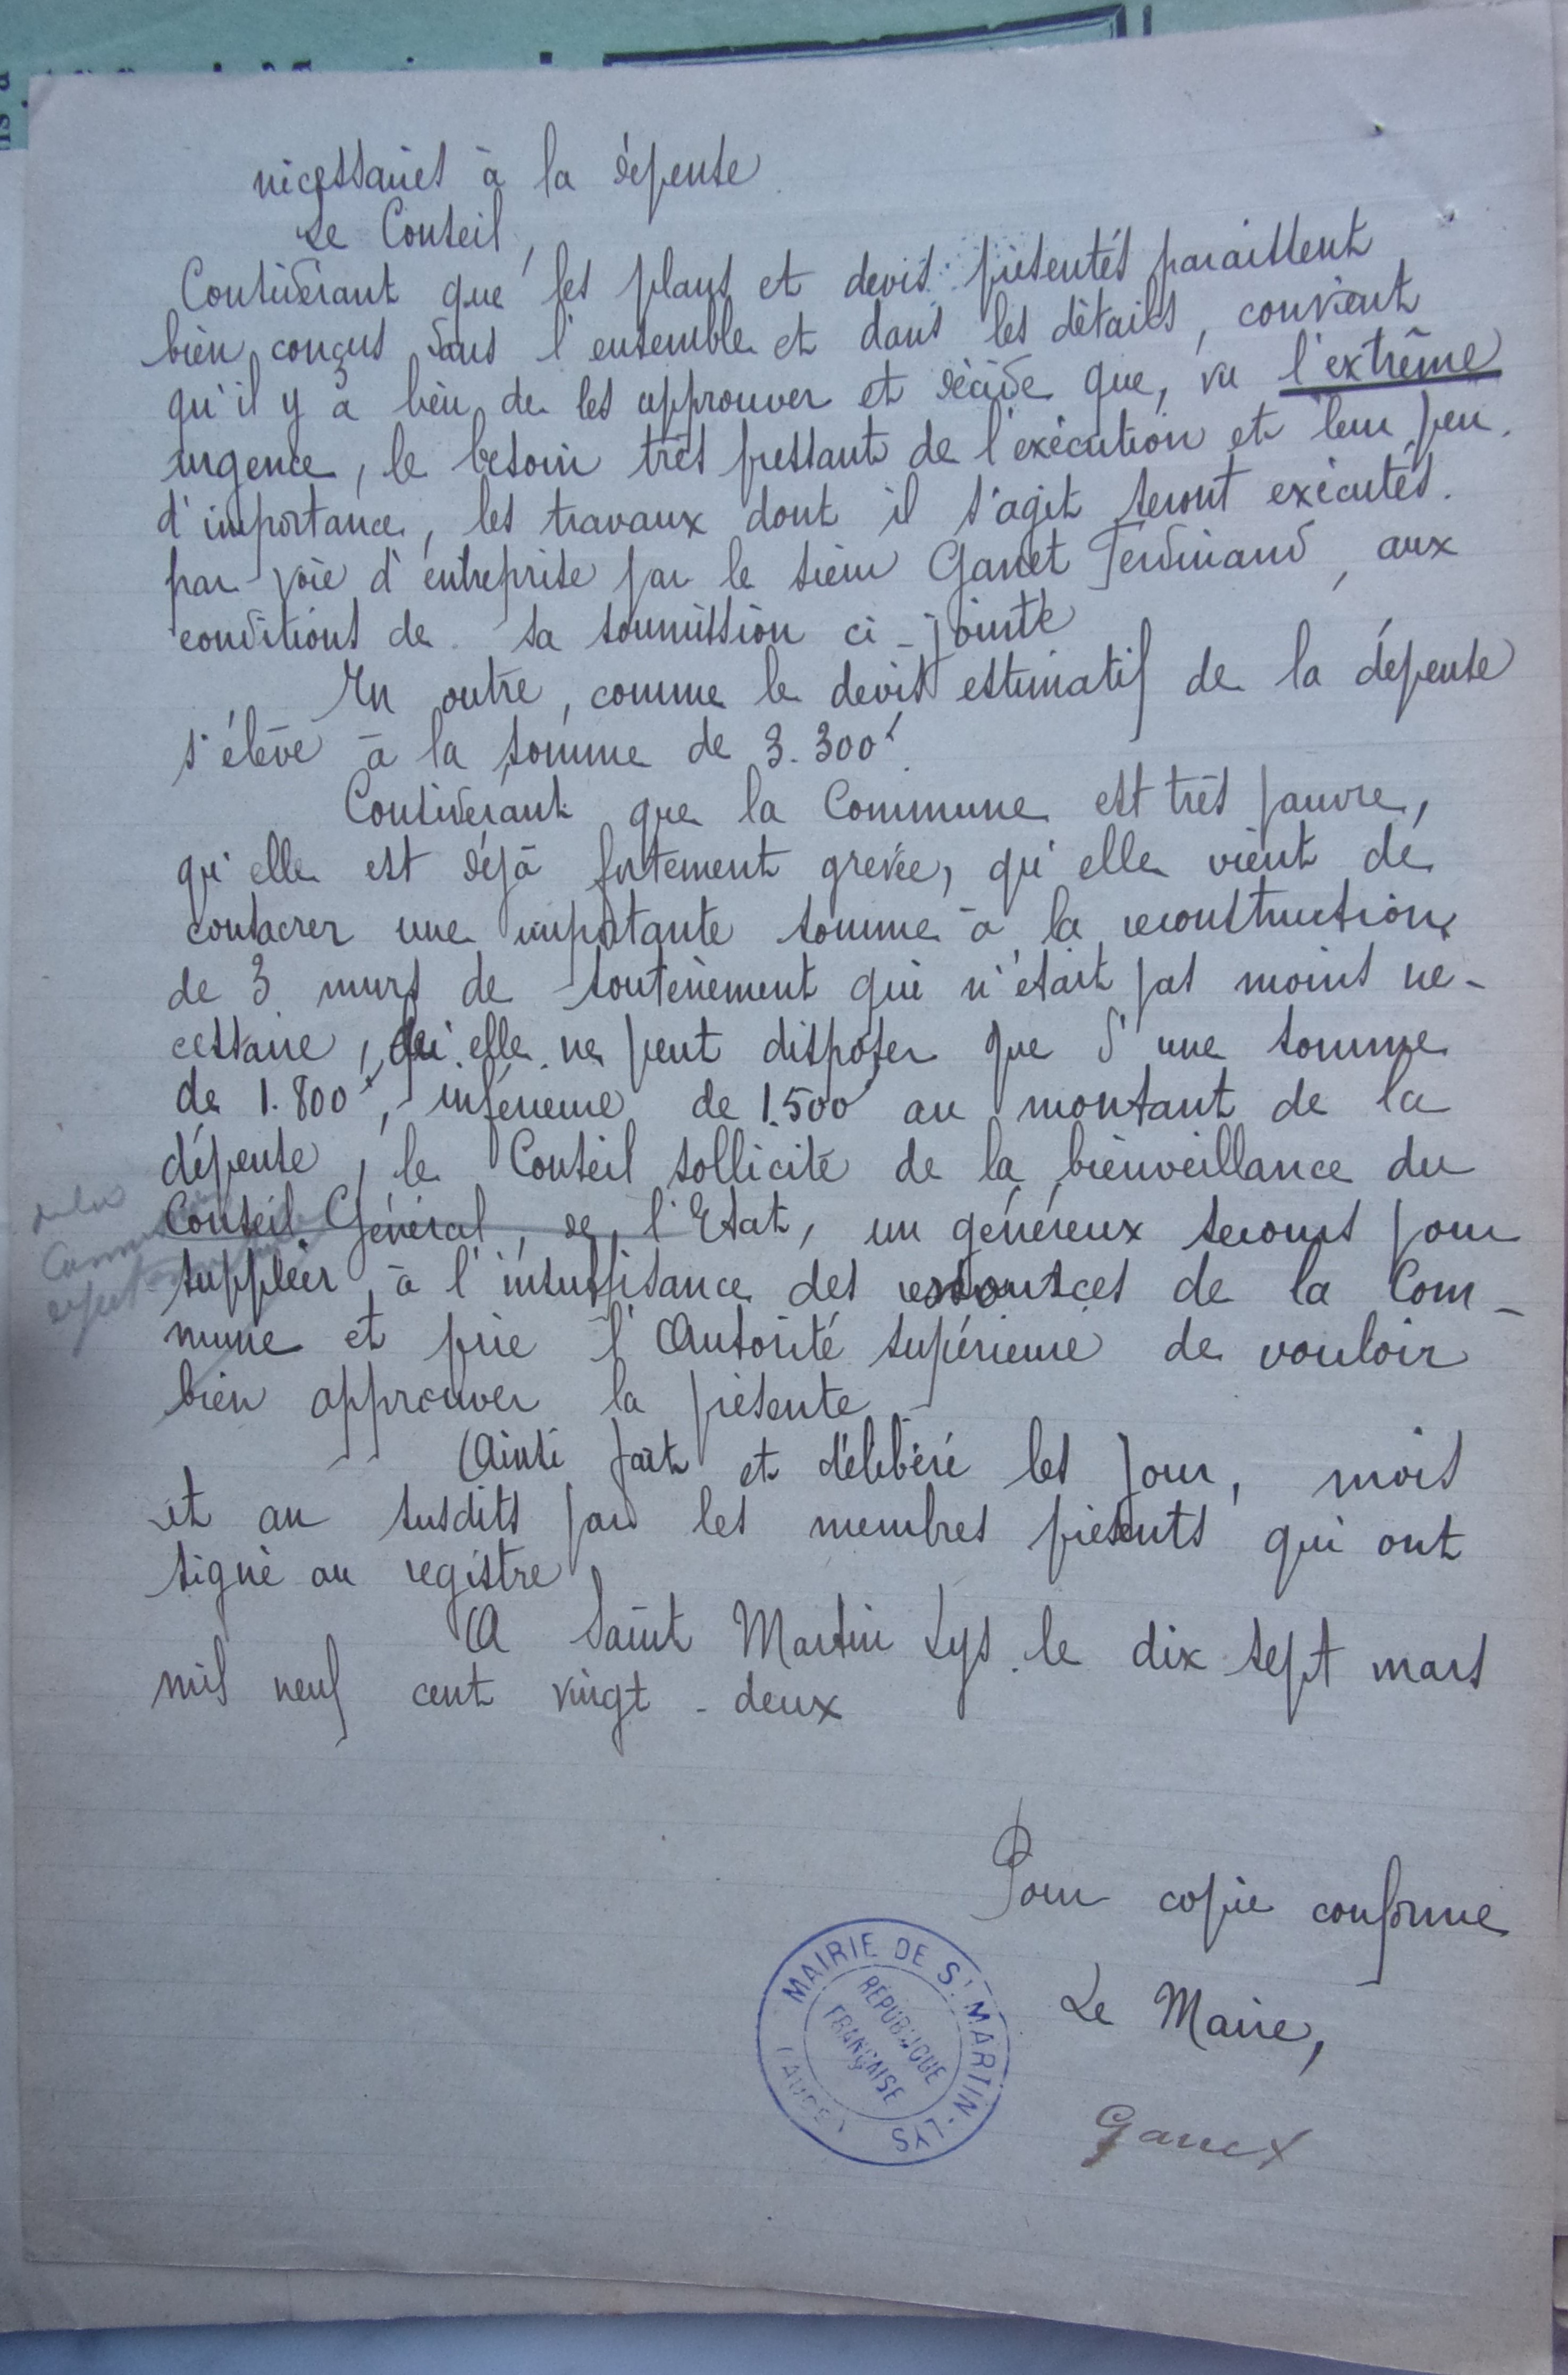 nécessaires à la dépense
Le Conseil,
Considérant que les plans et devis présentés paraissent
bien conçus dans l'ensemble et dans les détails, convient
qu'il y a lieu de les approuver et décide que, vu l'extrême
urgence, le besoin très pressant de l'exécution et leur peu
d'importance, les travaux dont il s'agit seront exécutés
par voie d'entreprise par le sieur Ganet Ferdinand, aux
conditions de sa soumission ci-jointe
En outre, comme le devis estimatif de la dépense
s'élève à la somme de 3.300f.
Considérant que la Commune est très pauvre,
qu'elle est déjà fortement grevée, qu'elle vient de
consacrer une importante somme à la reconstruction
de 3 murs de soutènement qui n'était pas moins né-
cessaire, qu'elle ne peut disposer que d'une somme
de 1.800f, inférieure de 1.500f au montant de la
dépense, le Conseil sollicite de la bienveillance du
Conseil Général, de l'Etat, un généreux secours pour
suppléer à l'insuffisance des ressources de la Com-
mune et prie l'Autorité supérieure de vouloir
bien approuver la présente
Ainsi fait et délibéré les jour, mois
et an susdits par les membres présents qui ont
signé au registre
A Saint Martin Lys le dix sept mars
mil neuf cent vingt-deux
de la
Pour copie conforme
Le Maire,
Ganet
MAIRIE DE St MARTIN-LYS
(AUDE)
RÉPUBLIQUE
FRANÇAISE